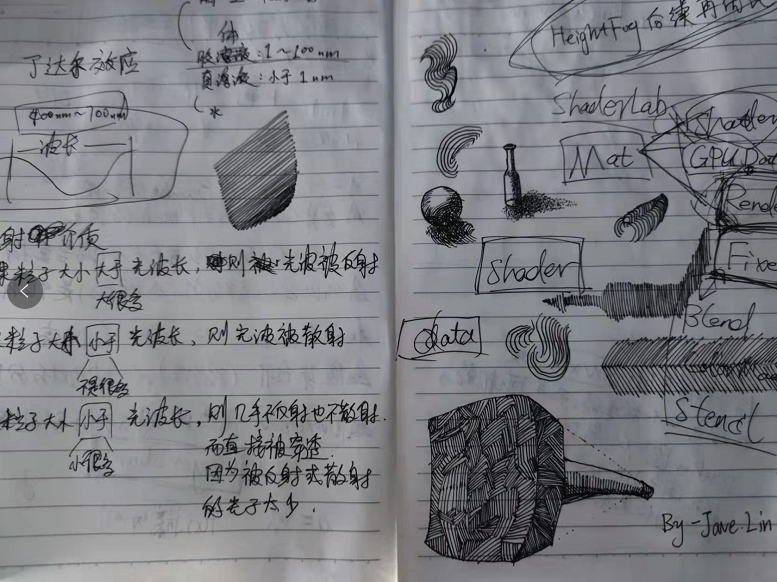 体
胶溶液：1～100nm
真溶液：小于1nm
水
丁达尔效应
400nm～700nm
波长
射 介质
粒子大小大于光波长，则 光波被反射
大很多
粒子大 小于光波长，则光波被散射
不是很多
粒子大小小于光波长，则几乎不反射也不散射.
小很多
而直接被穿透.
因为被反射或散射
的光子太少.
HeightFog 后续再
ShaderLab
Mat
GPU Dat
Rende
Shader
Fixe
Blend
data
Stencil
By-Jane.Lin